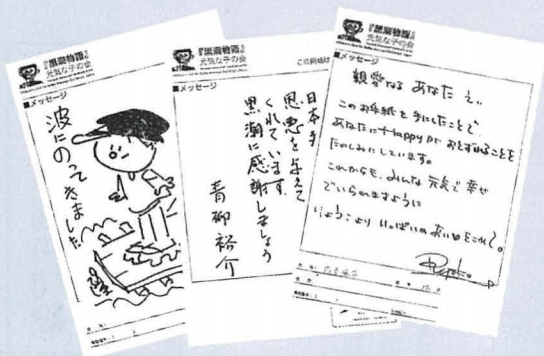 『黒潮物語』
元気な子の会
■メッセージ
波にのってきました
『黒潮物語』
元気な子の会
■メッセージ
日本に
恩恵を与えて
くれています
黒潮に感謝しましょう
青柳裕介
『黒潮物語』
元気な子の会
■メッセージ
親愛なる あなた へ
このお手紙を手にしたことで
あなたにHappyが おとずれることを
たのしみにしています。
これからも、みんな 元気で 幸せ
でいられますように
りょうこより いっぱいの 想いをこめて。
Ryoko